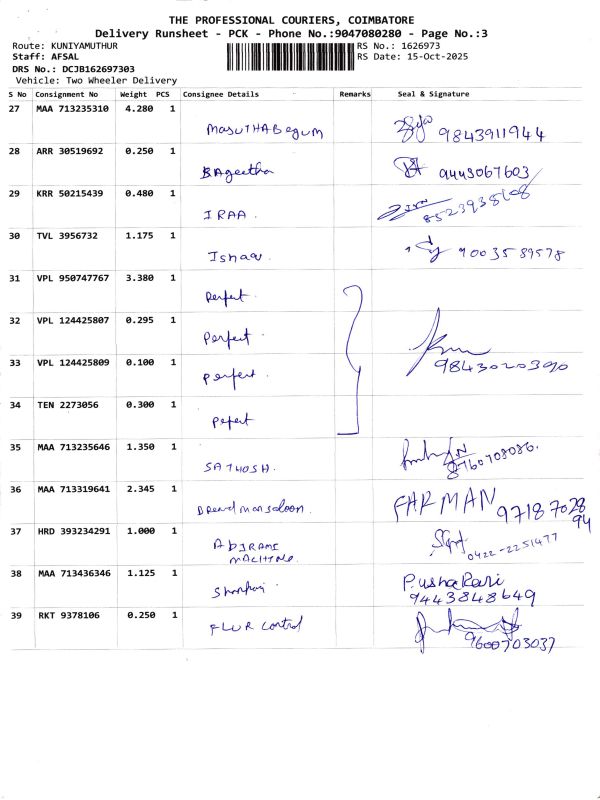 THE PROFESSIONAL COURIERS, COIMBATORE
Delivery Runsheet - PCK - Phone No.:9047080280 - Page No.:3
Route: KUNIYAMUTHUR
RS No.: 1626973
Staff: AFSAL
RS Date: 15-Oct-2025
DRS No.: DCJB162697303
Vehicle: Two Wheeler Delivery
S No Consignment No Weight PCS Consignee Details Remarks Seal & Signature
27 MAA 713235310 4.280 1
MASUTHA Begum 9843911944
28 ARR 30519692 0.250 1
BAgeetha 9443067603
29 KRR 50215439 0.480 1
IRAA.
30 TVL 3956732 1.175 1
Ishaq 9003589578
31 VPL 950747767 3.380 1
Perfect.
32 VPL 124425807 0.295 1
Perfect
33 VPL 124425809 0.100 1
Perfect.
34 TEN 2273056 0.300 1
Pefect
35 MAA 713235646 1.350 1
SATHOSH. 8760708086.
36 MAA 713319641 2.345 1
FARMAN 97187028
94
37 HRD 393234291 1.000 1
ABIRAMI 0422-2251477
MACHINE.
38 MAA 713436346 1.125 1
PushaRani
9443848649
39 RKT 9378106 0.250 1
FLUR Control 9600703037